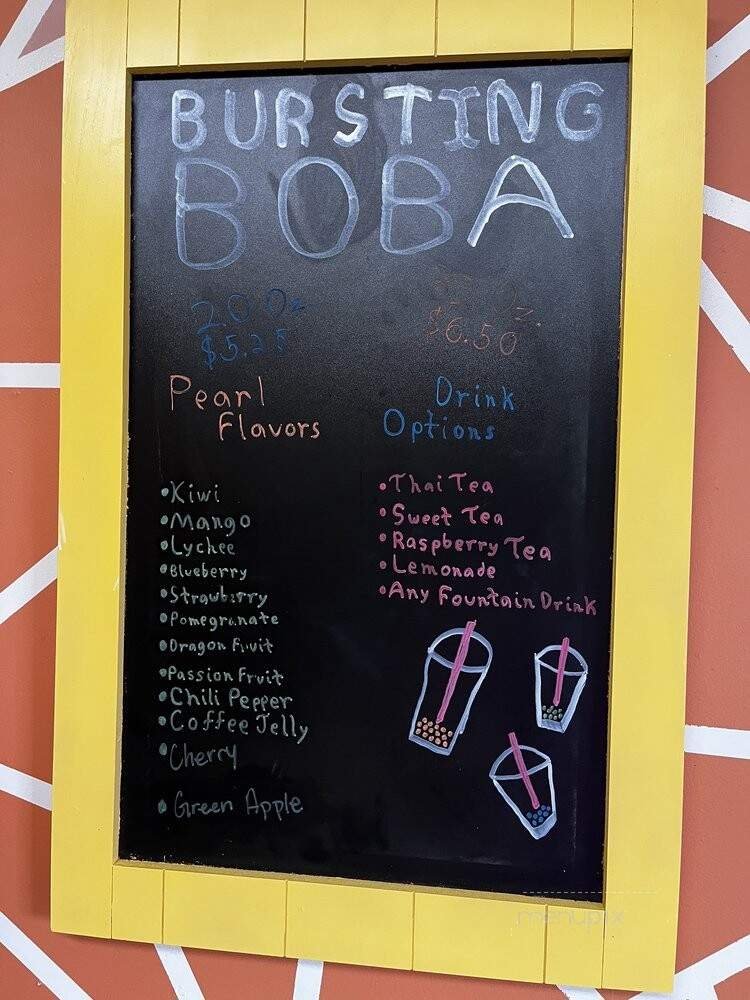 BURSTING
BOBA
20 Oz
$5.25
$6.50
Pearl
Flavors
Drink
Options
•Kiwi
•Mango
•Lychee
•Blueberry
•Strawberry
•Pomegranate
•Dragon Fruit
•Passion Fruit
•Chili Pepper
•Coffee Jelly
•Cherry
•Green Apple
•Thai Tea
•Sweet Tea
•Raspberry Tea
•Lemonade
•Any Fountain Drink
menupix